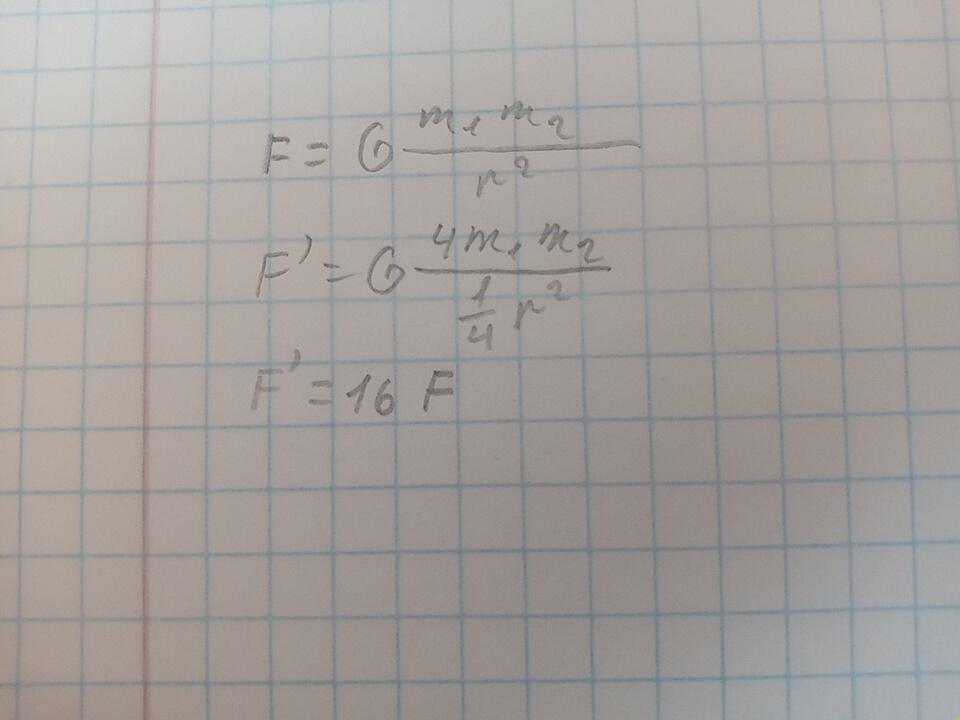 F = G \frac{m_1 m_2}{r^2}
F' = G \frac{4 m_1 m_2}{\frac{1}{4} r^2}
F' = 16 F